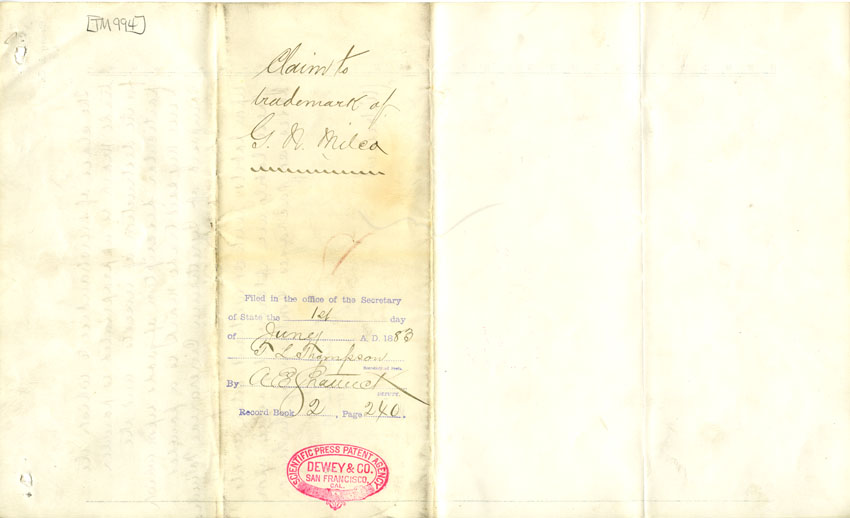 [TM994]
Claim to
trademark of
G. N. Milco
Filed in the office of the Secretary
of State the 1st day
of June A. D. 1883
T L Thompson
Secretary of State.
By A B
DEPUTY.
Record Book 2, Page 240.
SCIENTIFIC PRESS PATENT AGENCY
DEWEY & CO.
SAN FRANCISCO,
CAL.